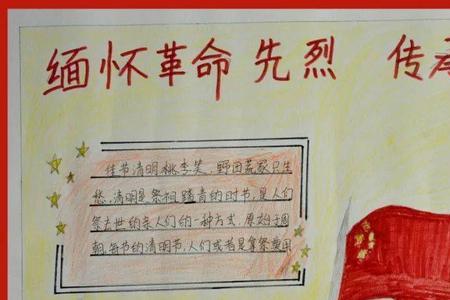 缅怀革命先烈 传承
佳节清明桃李笑,野田荒冢只生
愁.清明是祭祖踏青的时节,是人们
祭去世的亲人们的一种方式,原始于周
朝,每节的清明节,人们或者是拿祭要用